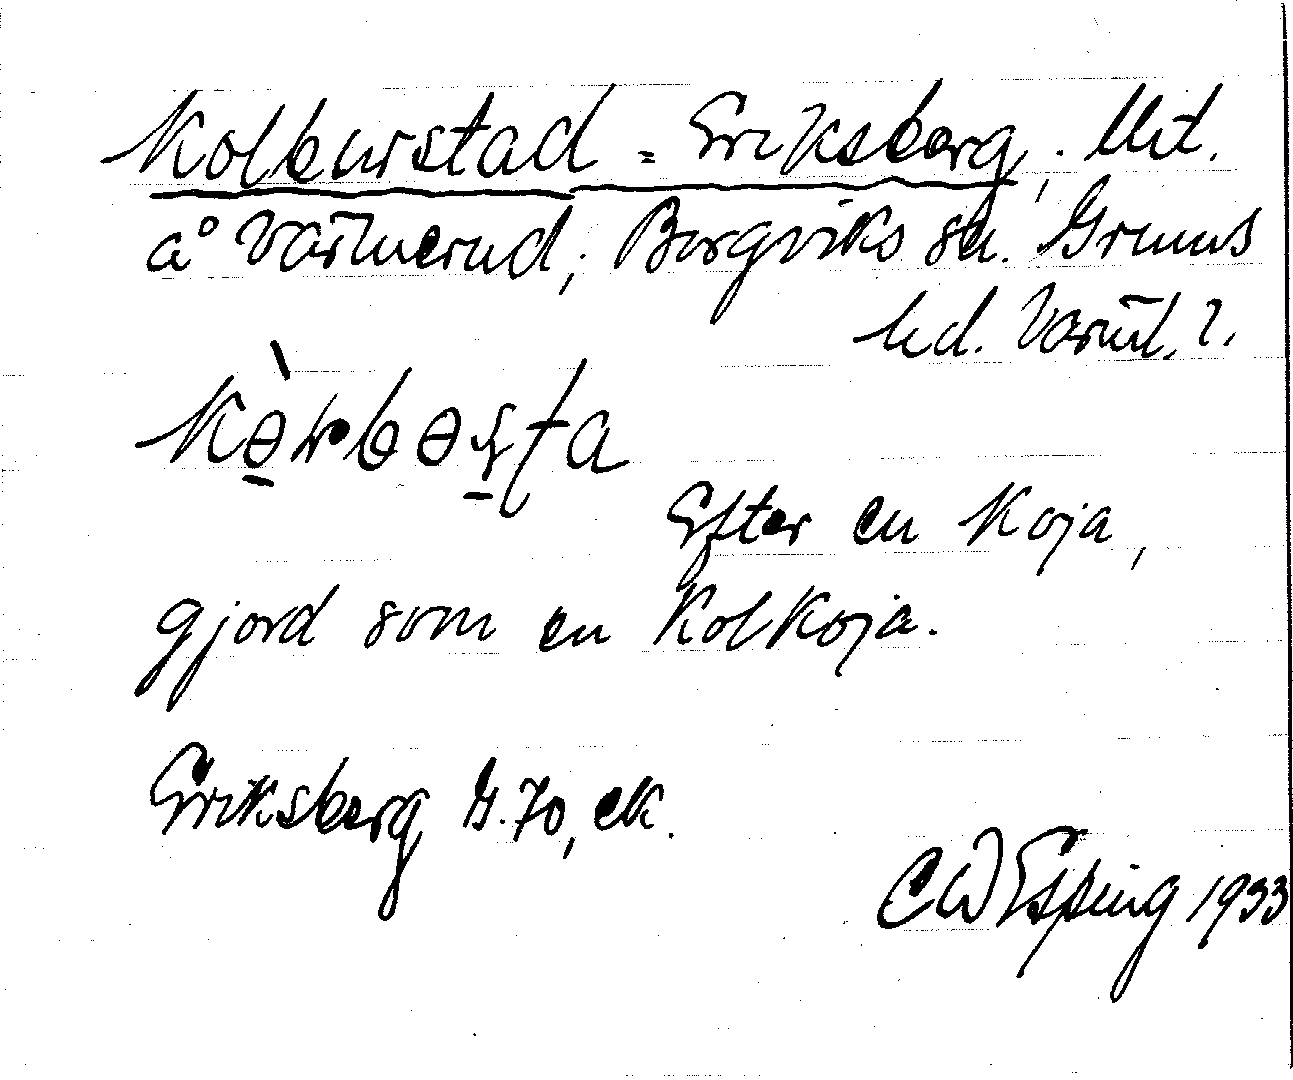 Kolburstad = Eriksberg, . Utl.
å Värmerud, Borgviks sn. Grums
hd. Värml. 2.
Efter en koja,
gjord som en kolkoja.
Eriksberg G. 70, ek.
CW Esping 1933